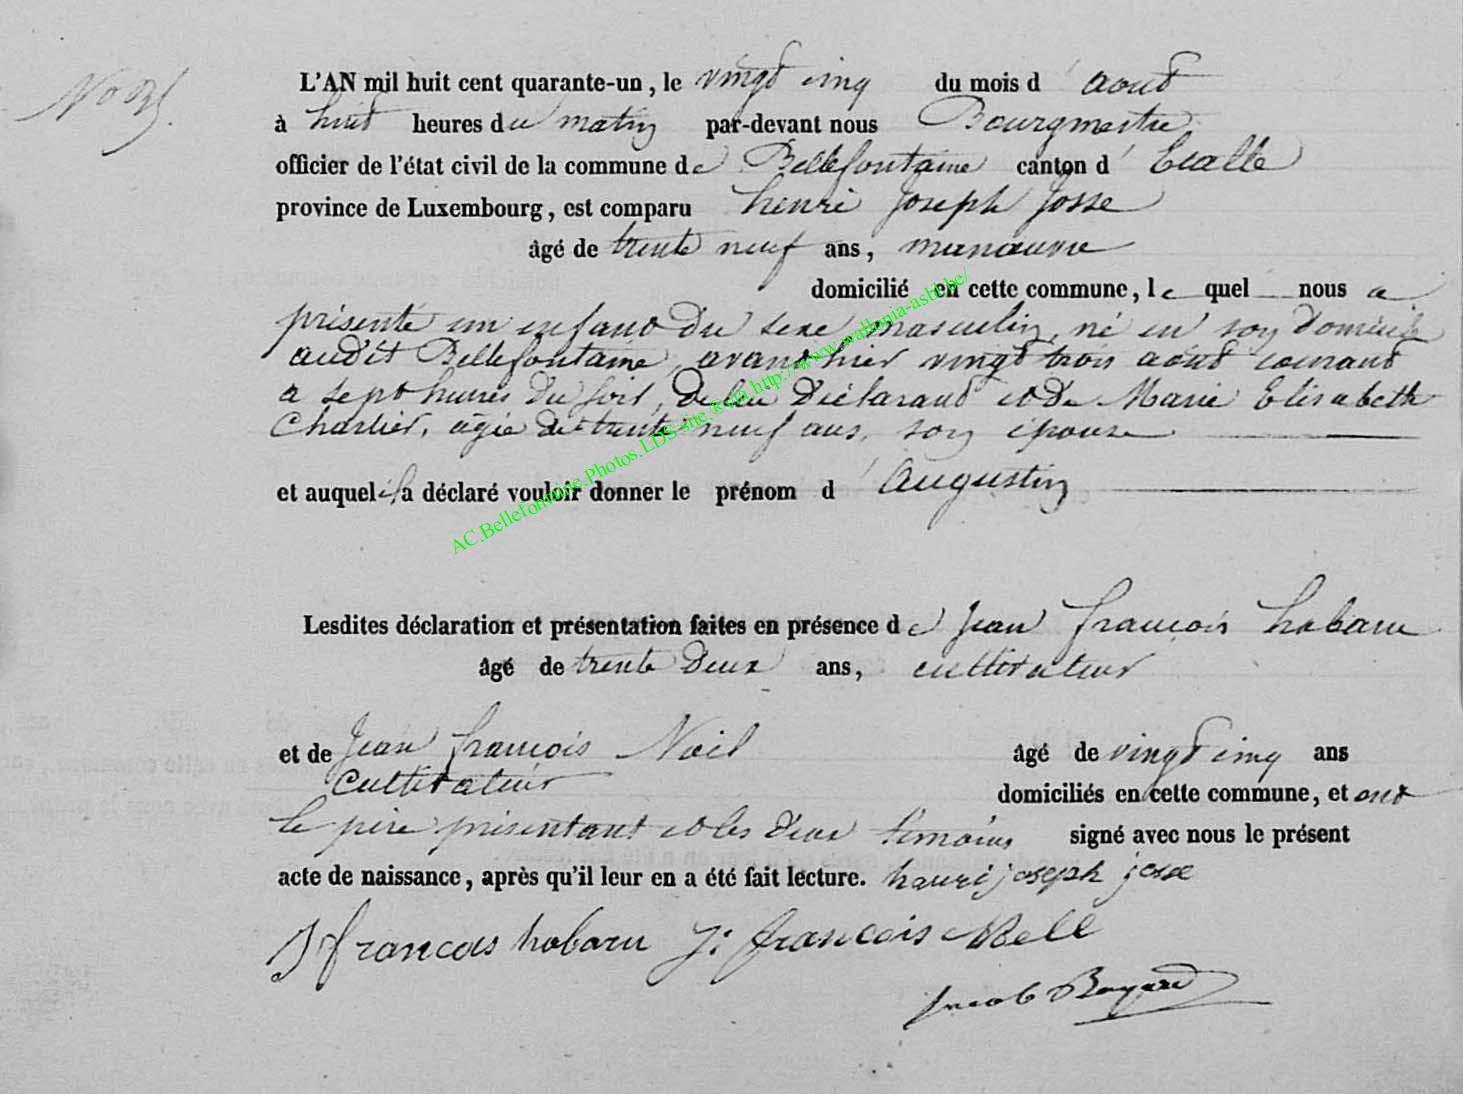 L'AN mil huit cent quarante-un, le vingt cinq du mois d'aout
à huit heures du matin par-devant nous Bourgmestre
officier de l'état civil de la commune de Bellefontaine canton d'Etalle
province de Luxembourg, est comparu henri joseph josse
âgé de trente neuf ans, manœuvre
domicilié en cette commune, lequel nous a
présenté un enfant du sexe masculin, né en son domicile
audit Bellefontaine, avant hier vingt trois aout courant
a sept heures du soir, de lui déclarant et de Marie Elisabeth
Charlier, agée de trente neuf ans, son épouse
et auquel il a déclaré vouloir donner le prénom d'Augustin
AC.Bellefontaine.Photos.LDS-site.®via.http://www.wallonia-asbl.be/
Lesdites déclaration et présentation faites en présence de jean françois habaru
âgé de trente deux ans, cultivateur
et de jean françois Noël âgé de vingt cinq ans
cultivateur domiciliés en cette commune, et ont
le père présentant et les deux temoins signé avec nous le présent
acte de naissance, après qu'il leur en a été fait lecture. hanri joseph josse
J francois habaru J: francois
jacob Bayard